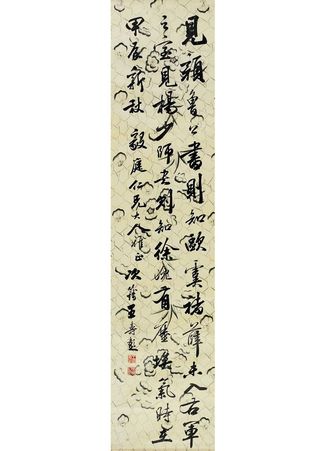 見顏魯公書則知歐虞褚薛未入右軍
之室見楊少師書則知徐沈有塵埃氣時在
甲辰新秋 毅庭仁兄大人雅正 次篯王壽彭